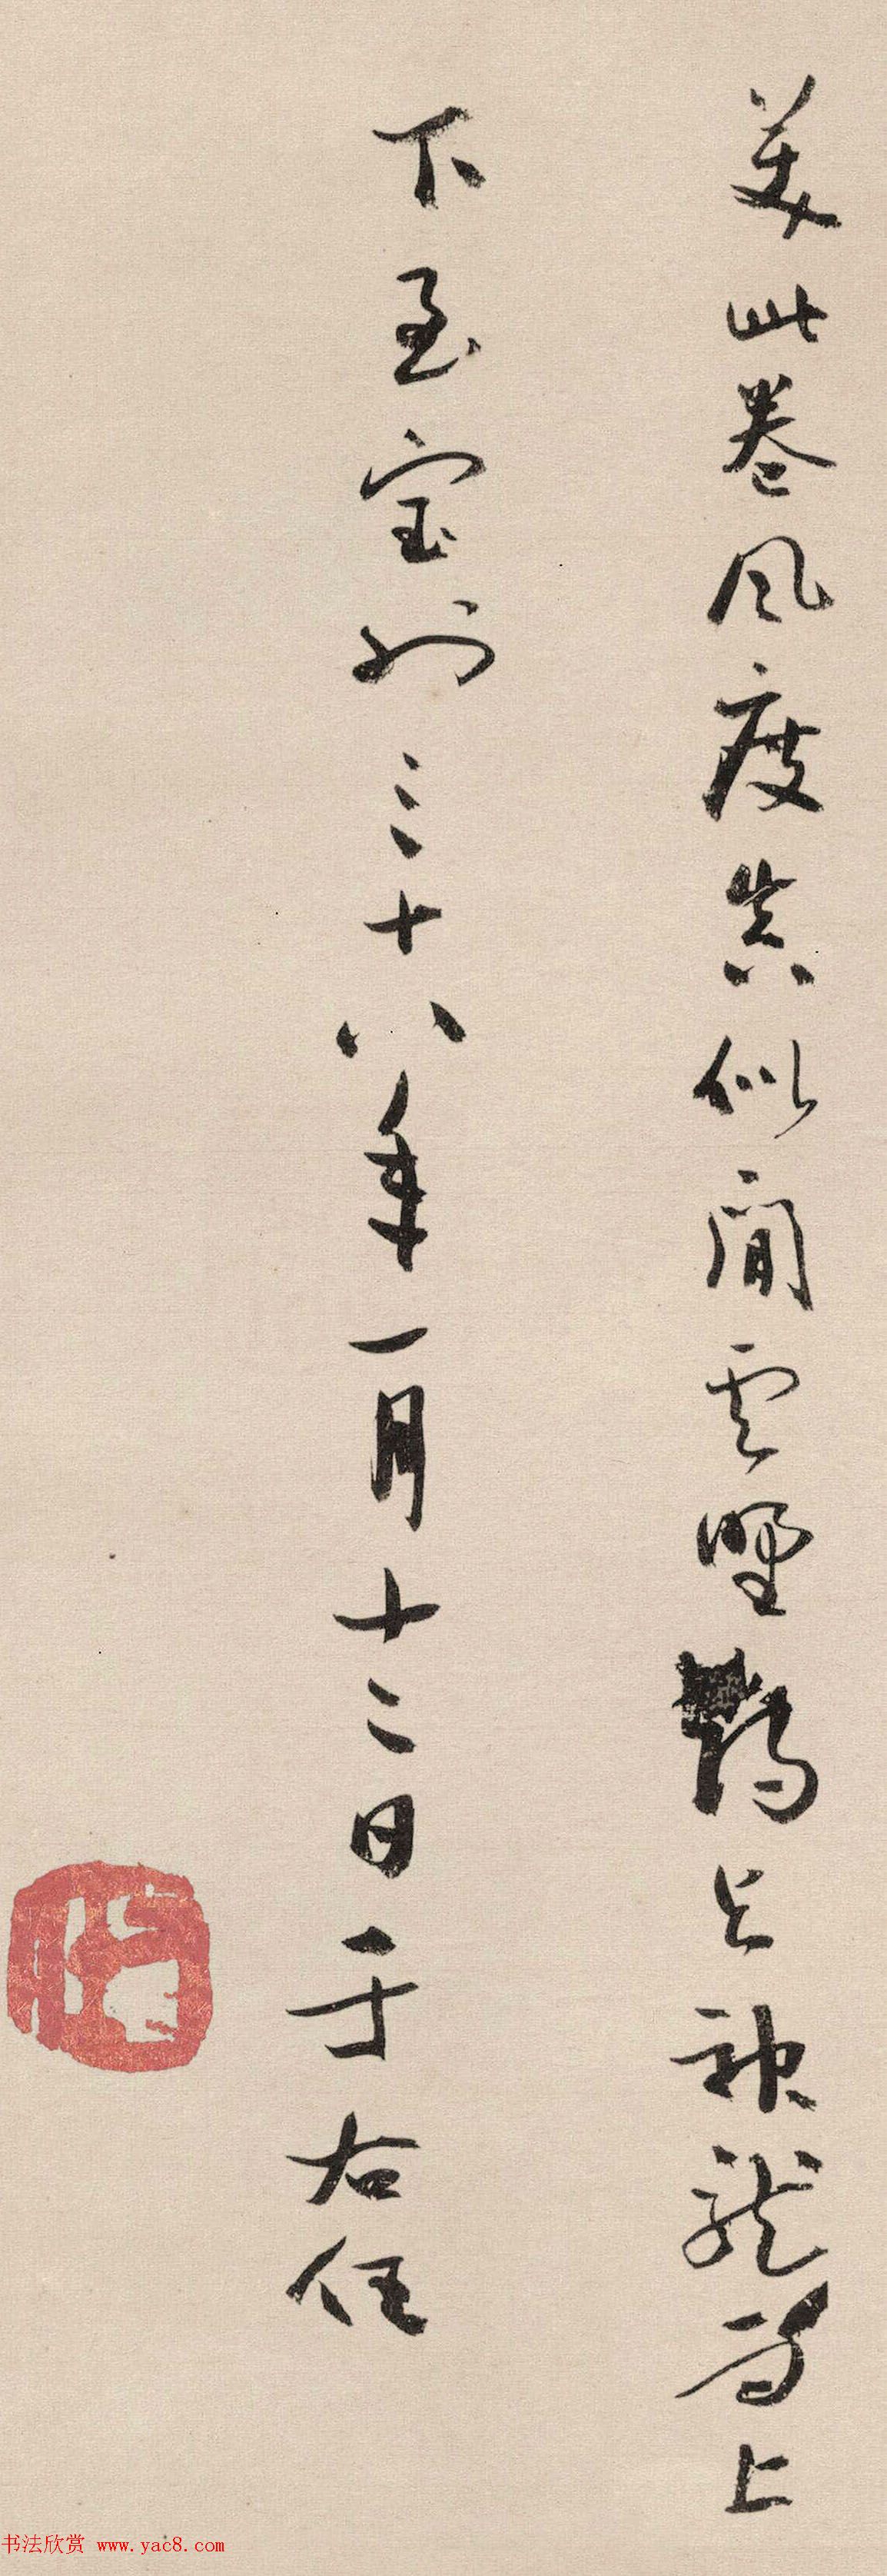 美此卷風度真似閒雲野鶴與神龍為上
下至宝也三十八年一月十二日于右任
书法欣赏 www.yac8.com